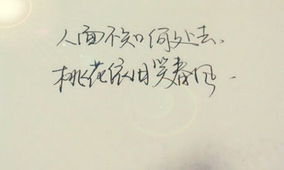 人面不知何处去、
桃花依旧笑春风.